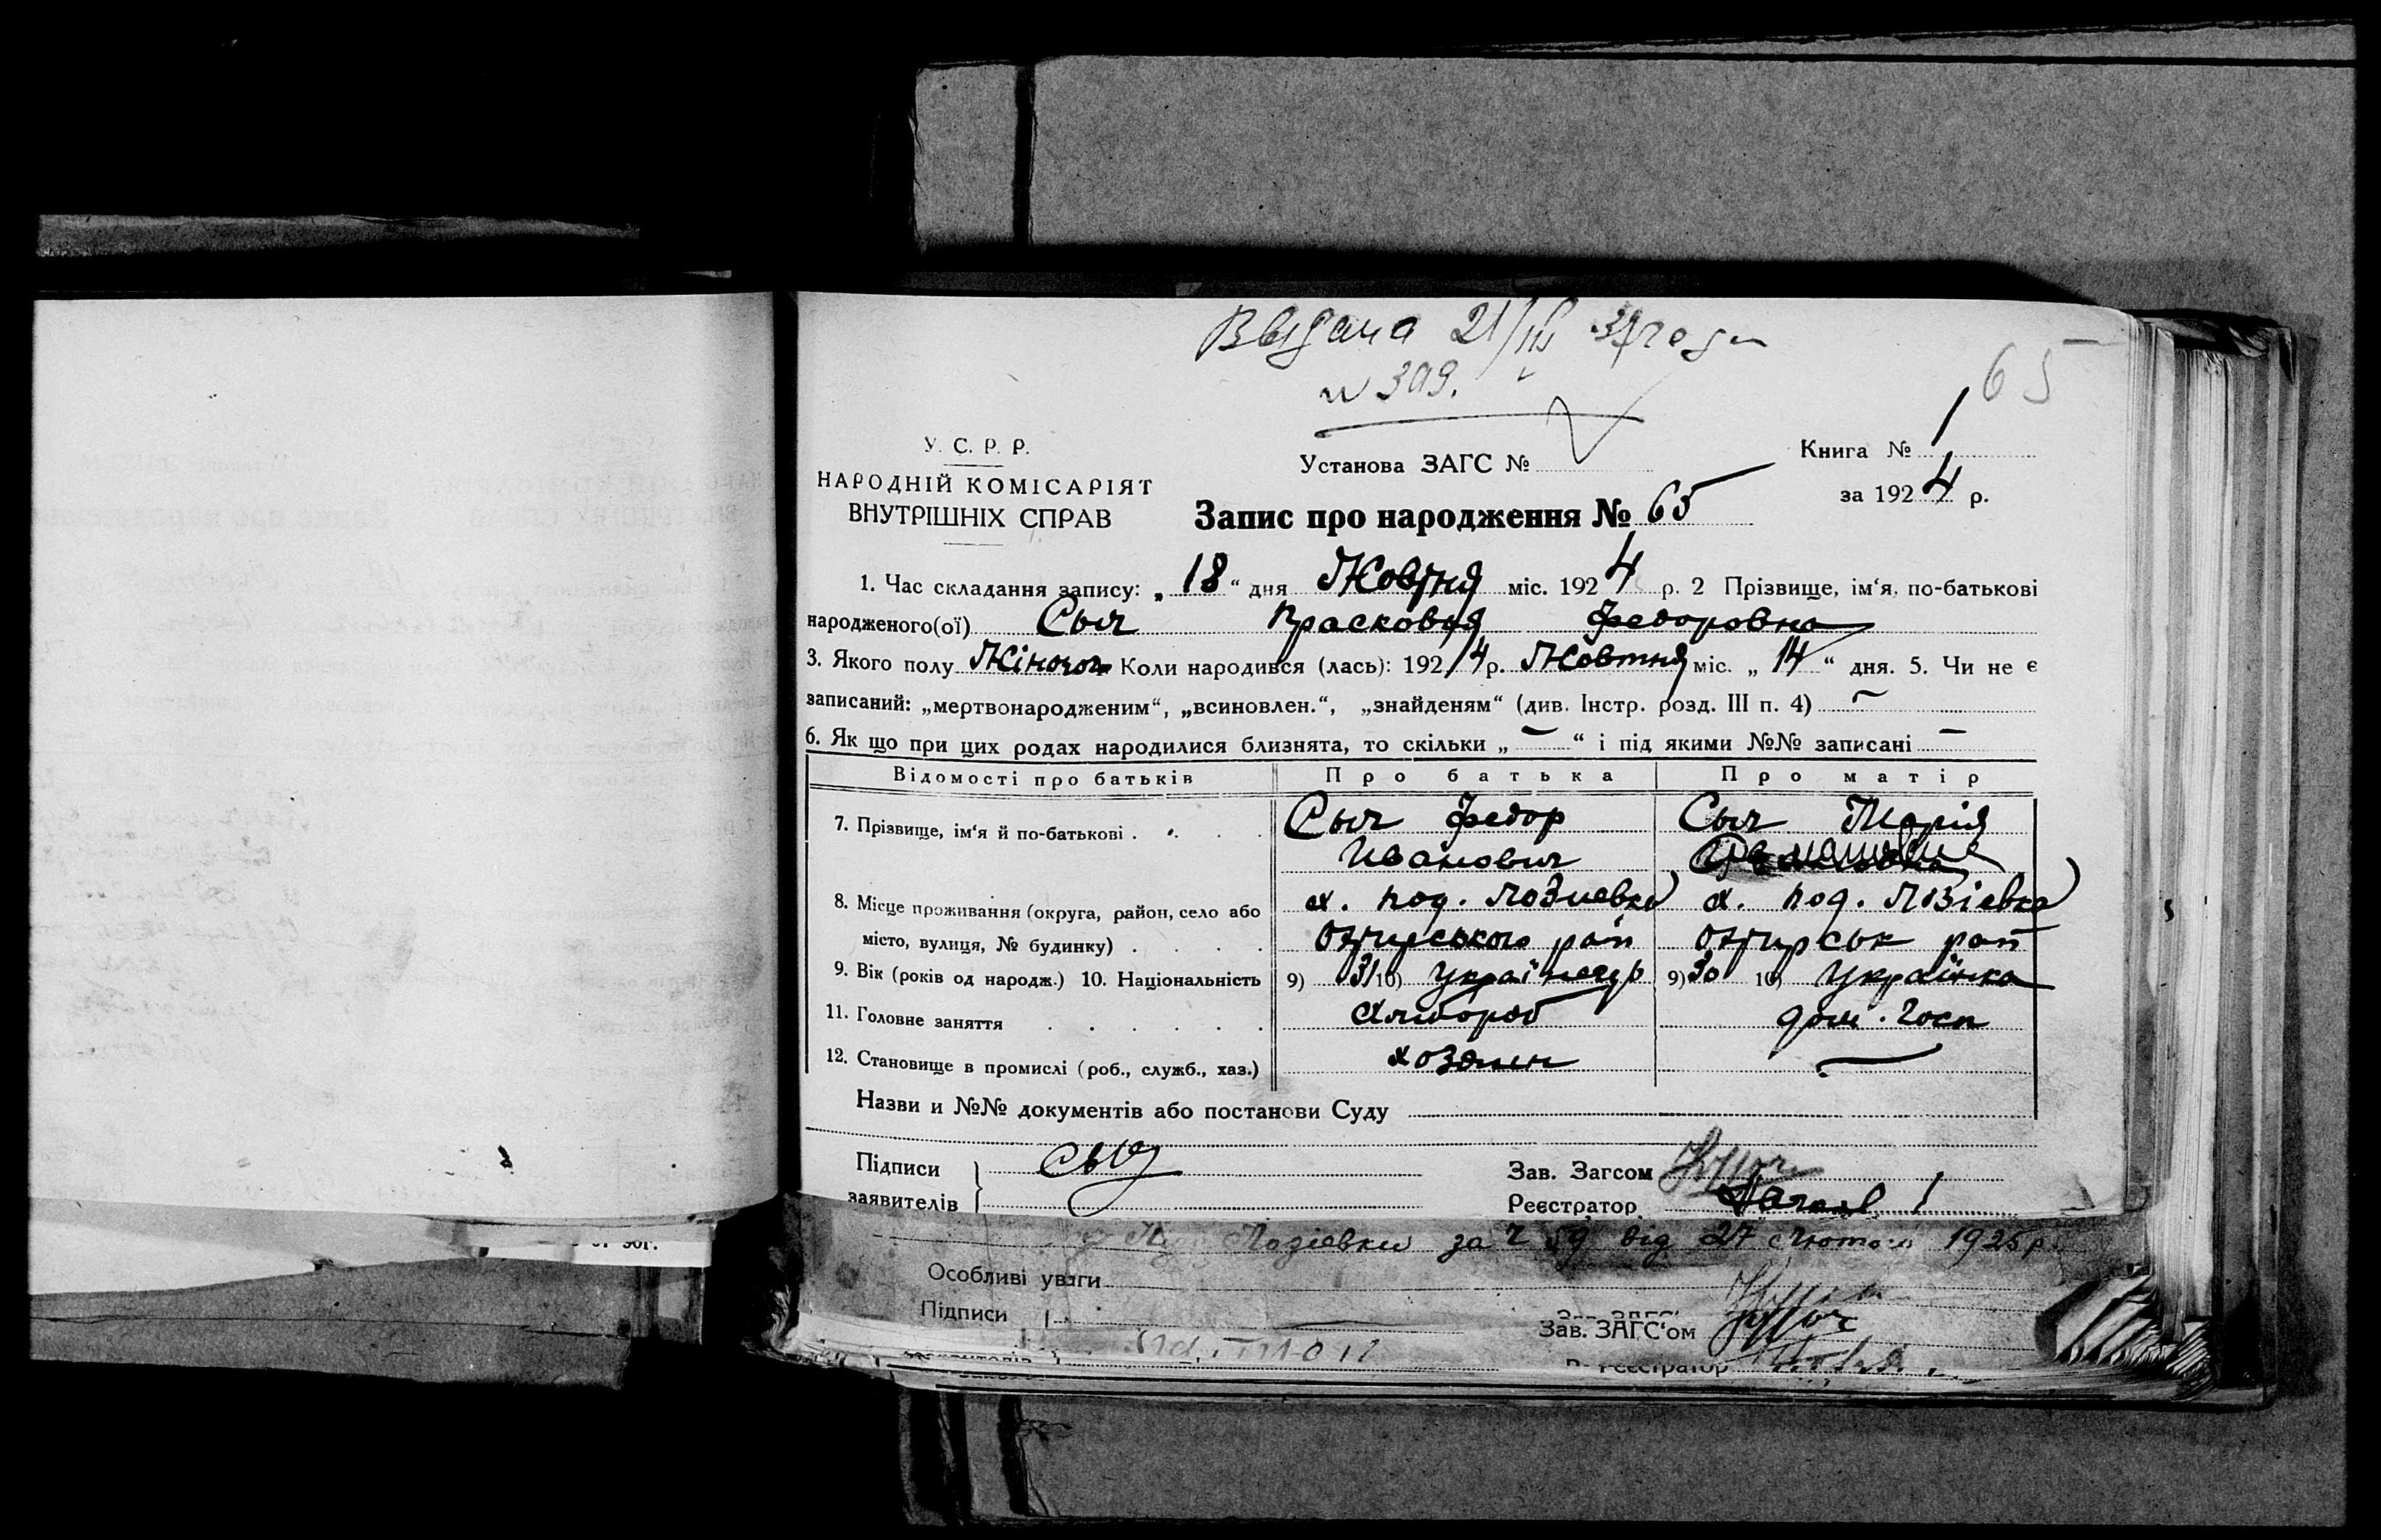 Выдана 21/III 37 года
N 309.
65
У. С. Р. Р.
НАРОДНІЙ КОМІСАРІЯТ
ВНУТРІШНІХ СПРАВ
Установа ЗАГС №
Книга № 1
за 1924 р.
Запис про народження № 65
1. Час складання запису: „ 18 “ дня Жовтня міс. 1924 р. 2 Прізвище, ім‘я, по-батькові
народженого(ої) Сыч Прасковья Федоровна
3. Якого полу Жіночої Коли народився (лась): 192/4 р. Жовтня міс. „ 14 “ дня. 5. Чи не є
записаний: „мертвонародженим“, „всиновлен.“, „знайденям“ (див. Інстр. розд. III п. 4) —
6. Як що при цих родах народилися близнята, то скільки „ — “ і під якими №№ записані —
Відомості про батьків Про батька Про матір
7. Прізвище, ім‘я й по-батькові . . . Сыч Федор Сыч Марія
Иванович
8. Місце проживання (округа, район, село або х. под. Лозиевка х. под. Лозіевка
місто, вулиця, № будинку) . . . . Охтирського рай Охтирськ рай
9. Вік (років од народж.) 10. Національність 9) 31 10) Українець 9) 30 10) Українка
11. Головне заняття . . . . . . Хлибороб дом. госп
12. Становище в промислі (роб., служб., хаз.) хозяин —
Назви и №№ документів або постанови Суду
Підписи Сыч Зав. Загсом
заявителів Реєстратор
Лозіевки за ч 59 від 27 лютого 1925 р.
Особливі уваги
Підписи
Зав. ЗАГС‘ом
Реєстратор